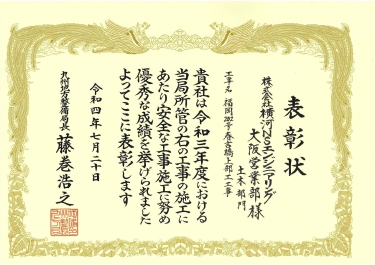 表彰状
株式会社横河NSエンジニアリング
大阪営業部様
土木部門
工事名 福岡201号春吉橋上部工工事
貴社は令和三年度における
当局所管の右の工事の施工に
あたり安全な工事施工に努め
優秀な成績を挙げられました
よってここに表彰します
令和四年七月二十日
九州地方整備局長 藤巻浩之